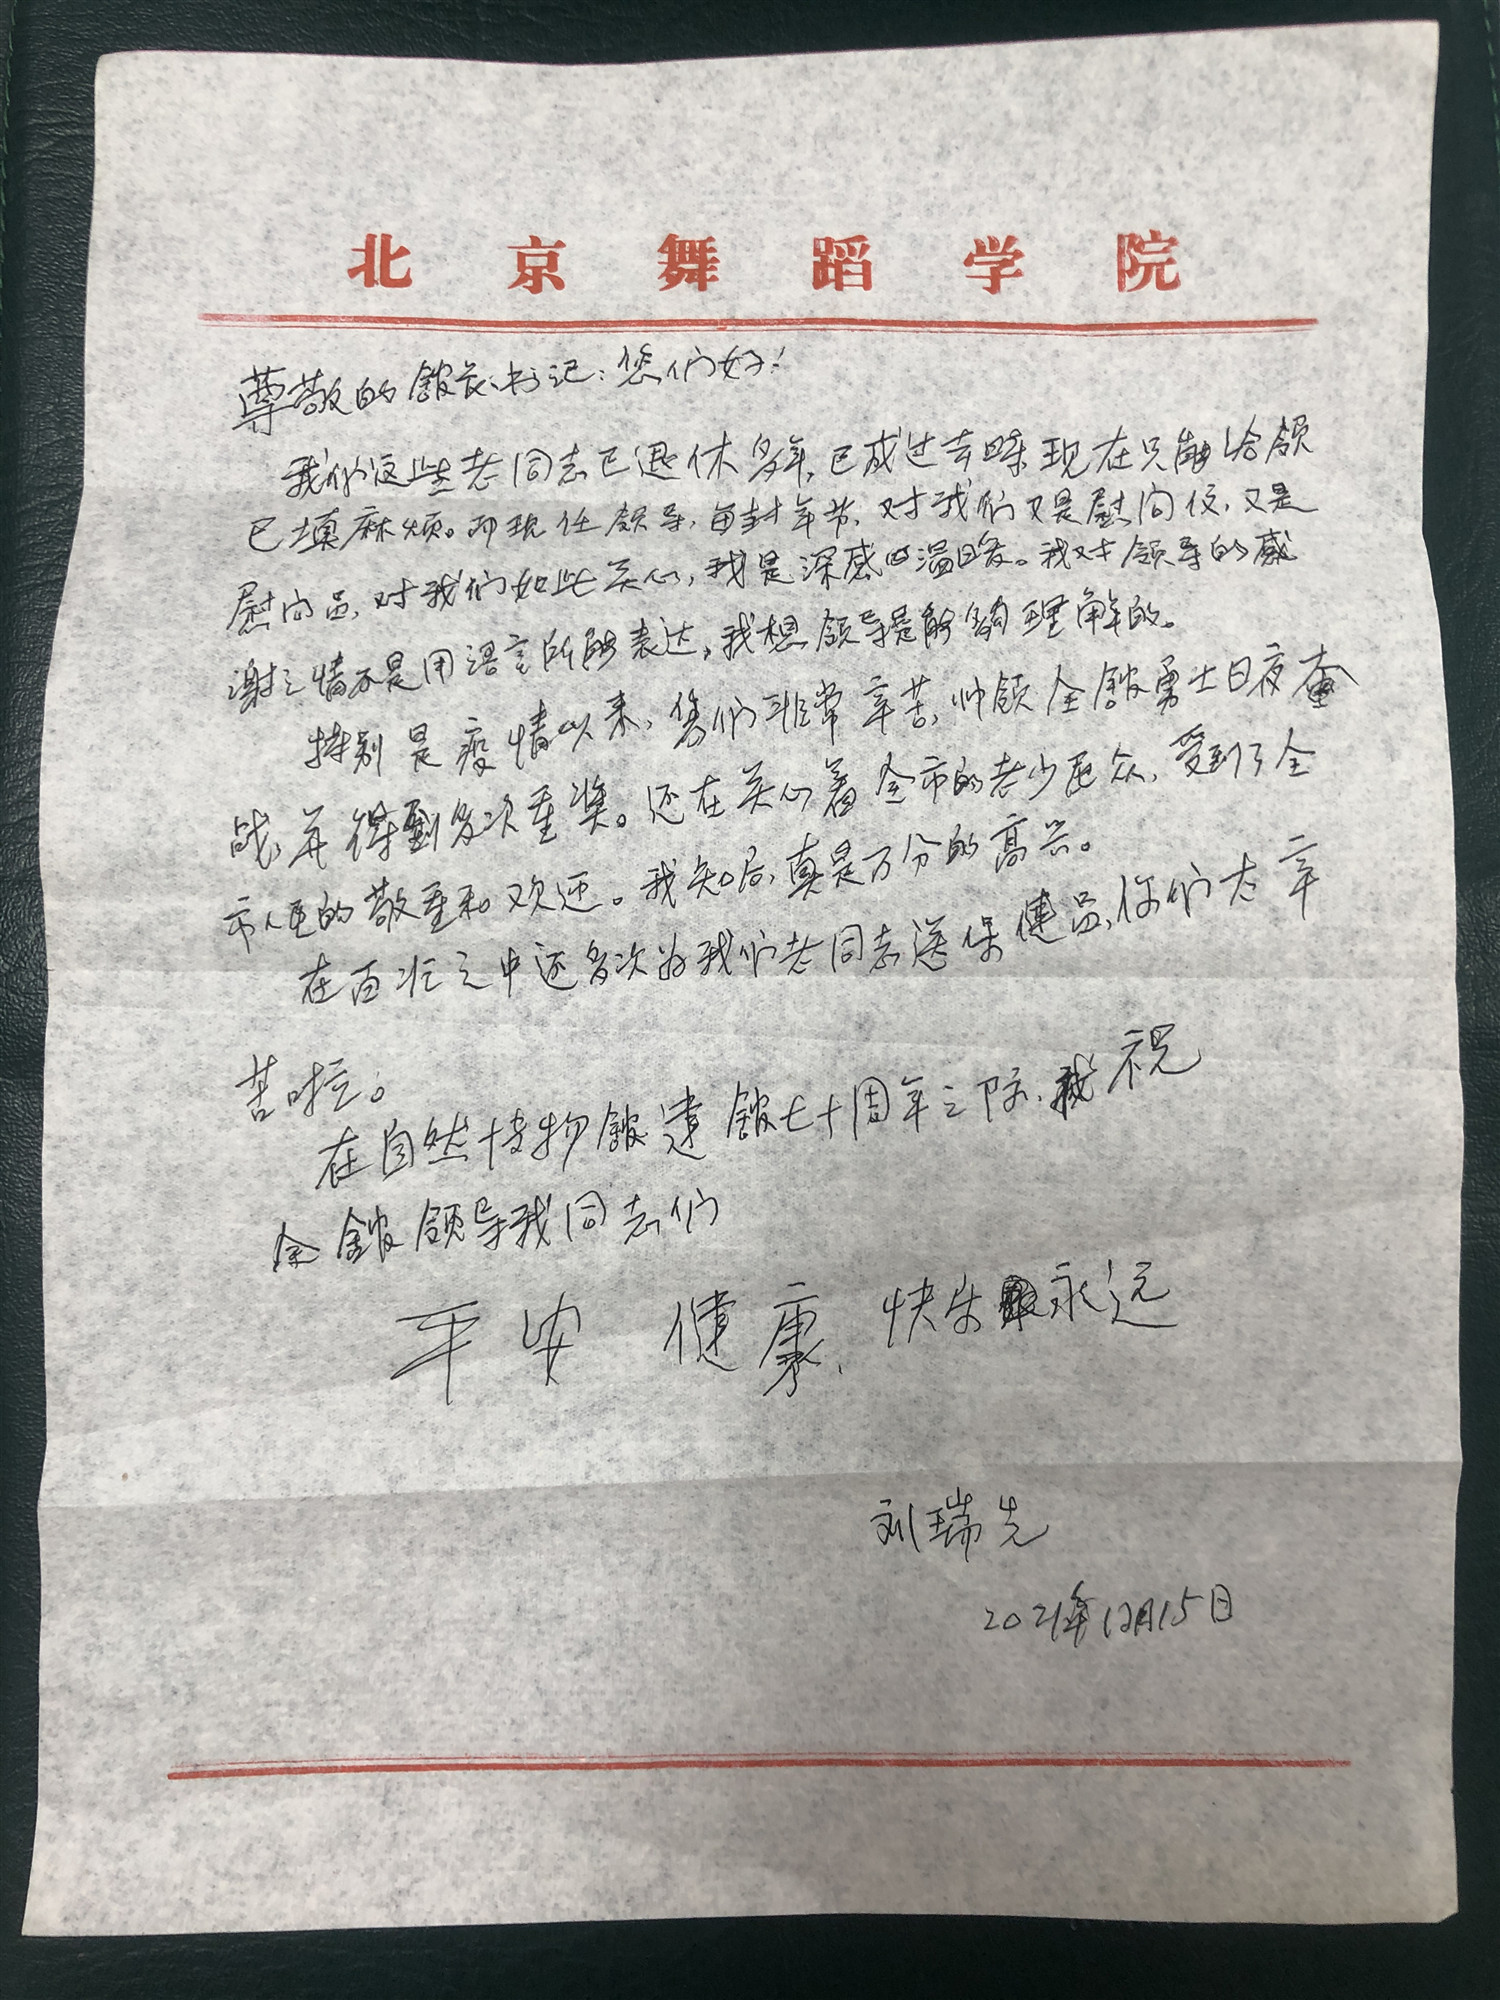 北京舞蹈学院
尊敬的馆长、书记：您们好！
我们这些老同志已退休多年，已成过去时现在只能给领
已填麻烦。而现任领导，每封年节，对我们又是慰问信，又是
慰问品，对我们如此关心，我是深感的温暖。我对领导的感
谢之情不是用语言所能表达，我想领导是能够理解的。
特别是疫情以来，您们非常辛苦，帅领全馆勇士日夜奋
战，并得到多次重奖。还在关心着全市的老少民众，受到了全
市人民的敬重和欢迎。我知后，真是万分的高兴。
在百忙之中还多次为我们老同志送保健品，你们太辛
苦啦。
在自然博物馆建馆七十周年之际，我祝
全馆领导我同志们
平安 健康、快乐永远
刘瑞先
2021年12月15日